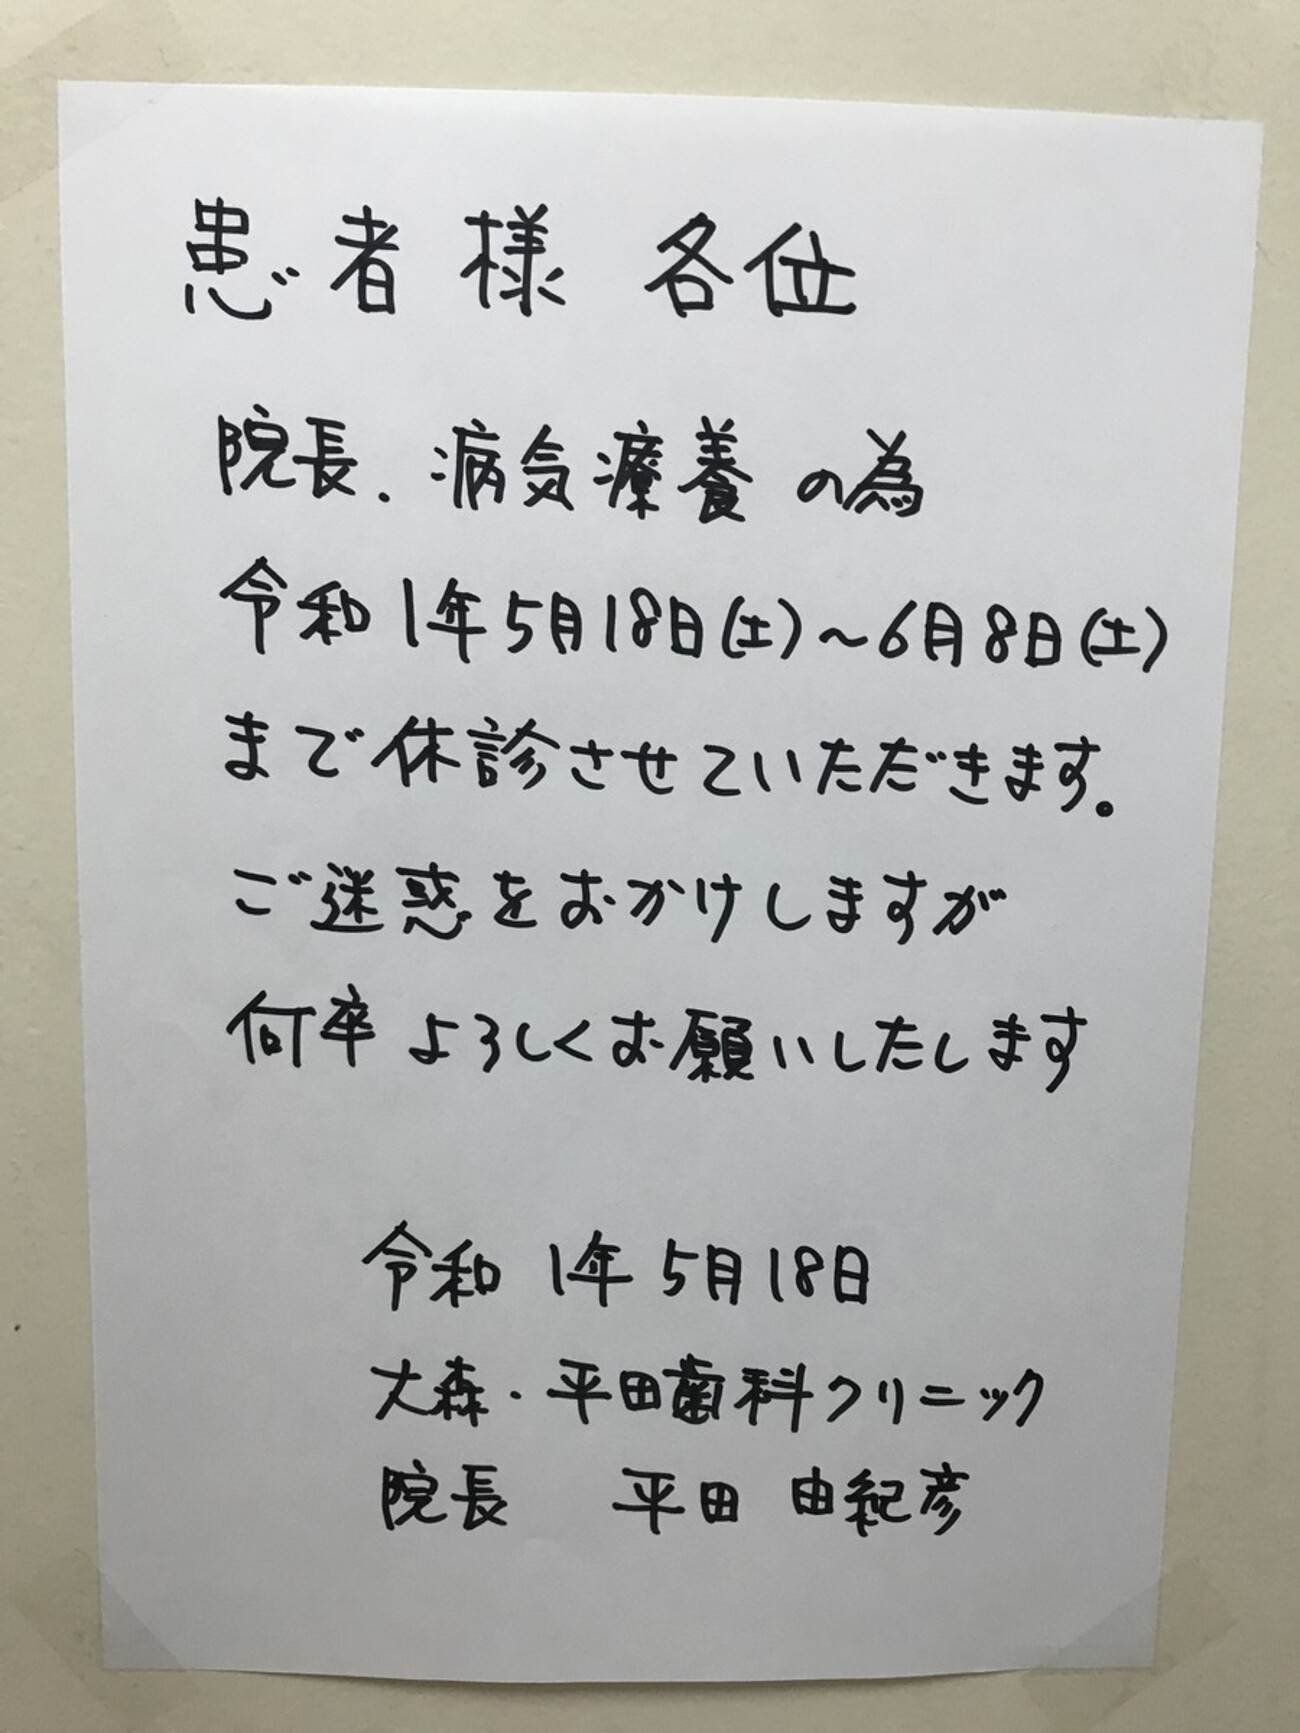 患者様 各位
院長.病気療養の為
令和1年5月18日(土)〜6月8日(土)
まで休診させていただきます。
ご迷惑をおかけしますが
何卒よろしくお願いいたします
令和1年5月18日
大森・平田歯科クリニック
院長 平田 由紀彦